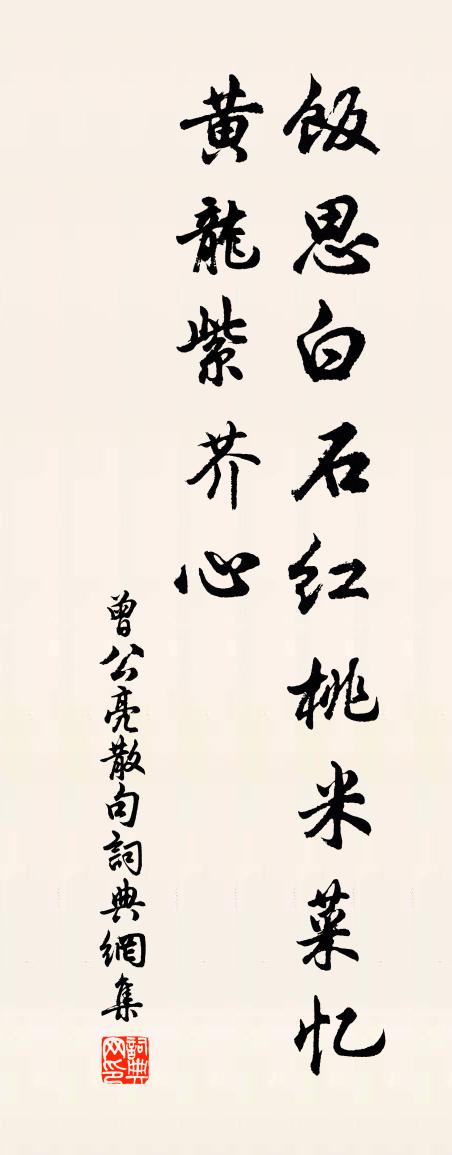 飯思白石红桃米菜忆
黃龍紫芥心
曾公亮散句詞典網集
詞典网印